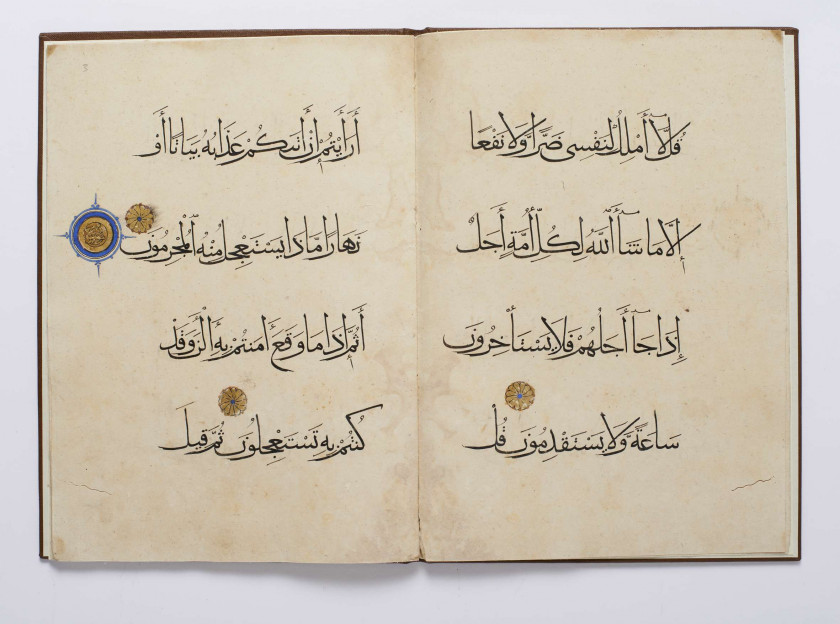 قُل لَّآ أَمْلِكُ لِنَفْسِى ضَرًّا وَلَا نَفْعًا
إِلَّا مَا شَآءَ ٱللَّهُ لِكُلِّ أُمَّةٍ أَجَلٌ
إِذَا جَآءَ أَجَلُهُمْ فَلَا يَسْتَأْخِرُونَ
سَاعَةً وَلَا يَسْتَقْدِمُونَ قُلْ
أَرَأَيْتُمْ إِنْ أَتَىكُمْ عَذَابُهُ بَيَاتًا أَوْ
نَهَارًا مَّاذَا يَسْتَعْجِلُ مِنْهُ ٱلْمُجْرِمُونَ
أَثُمَّ إِذَا مَا وَقَعَ ءَامَنتُمْ بِهِ ءَآلْـَٔنَ وَقَدْ
كُنتُمْ بِهِ تَسْتَعْجِلُونَ ثُمَّ قِيلَ